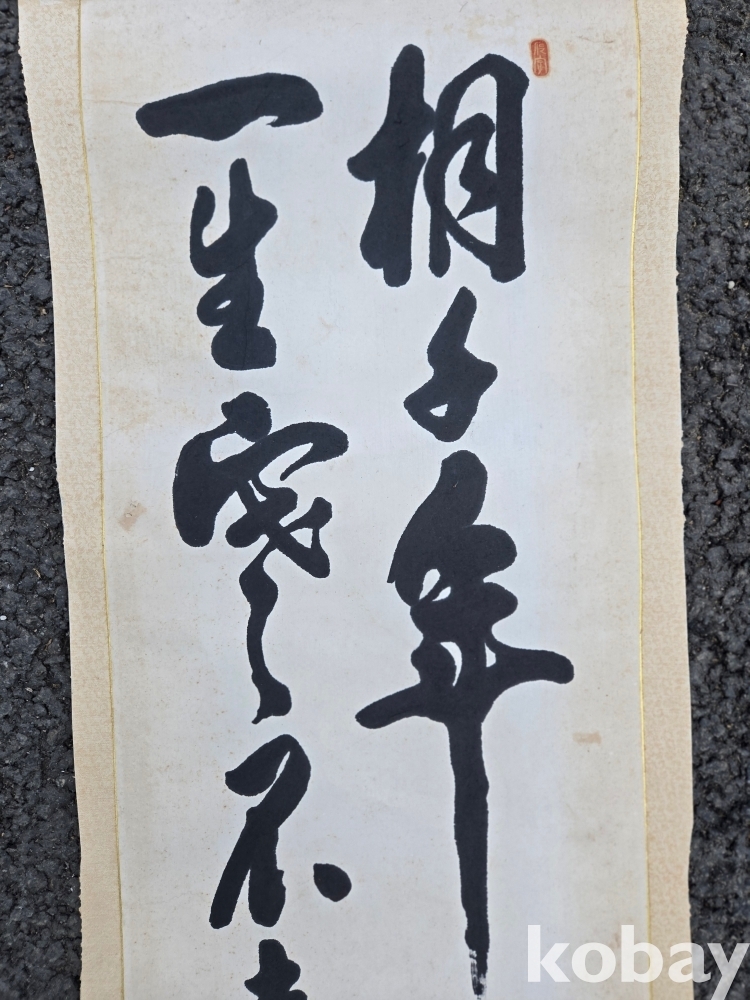 桐千年
一生寒不
kobay